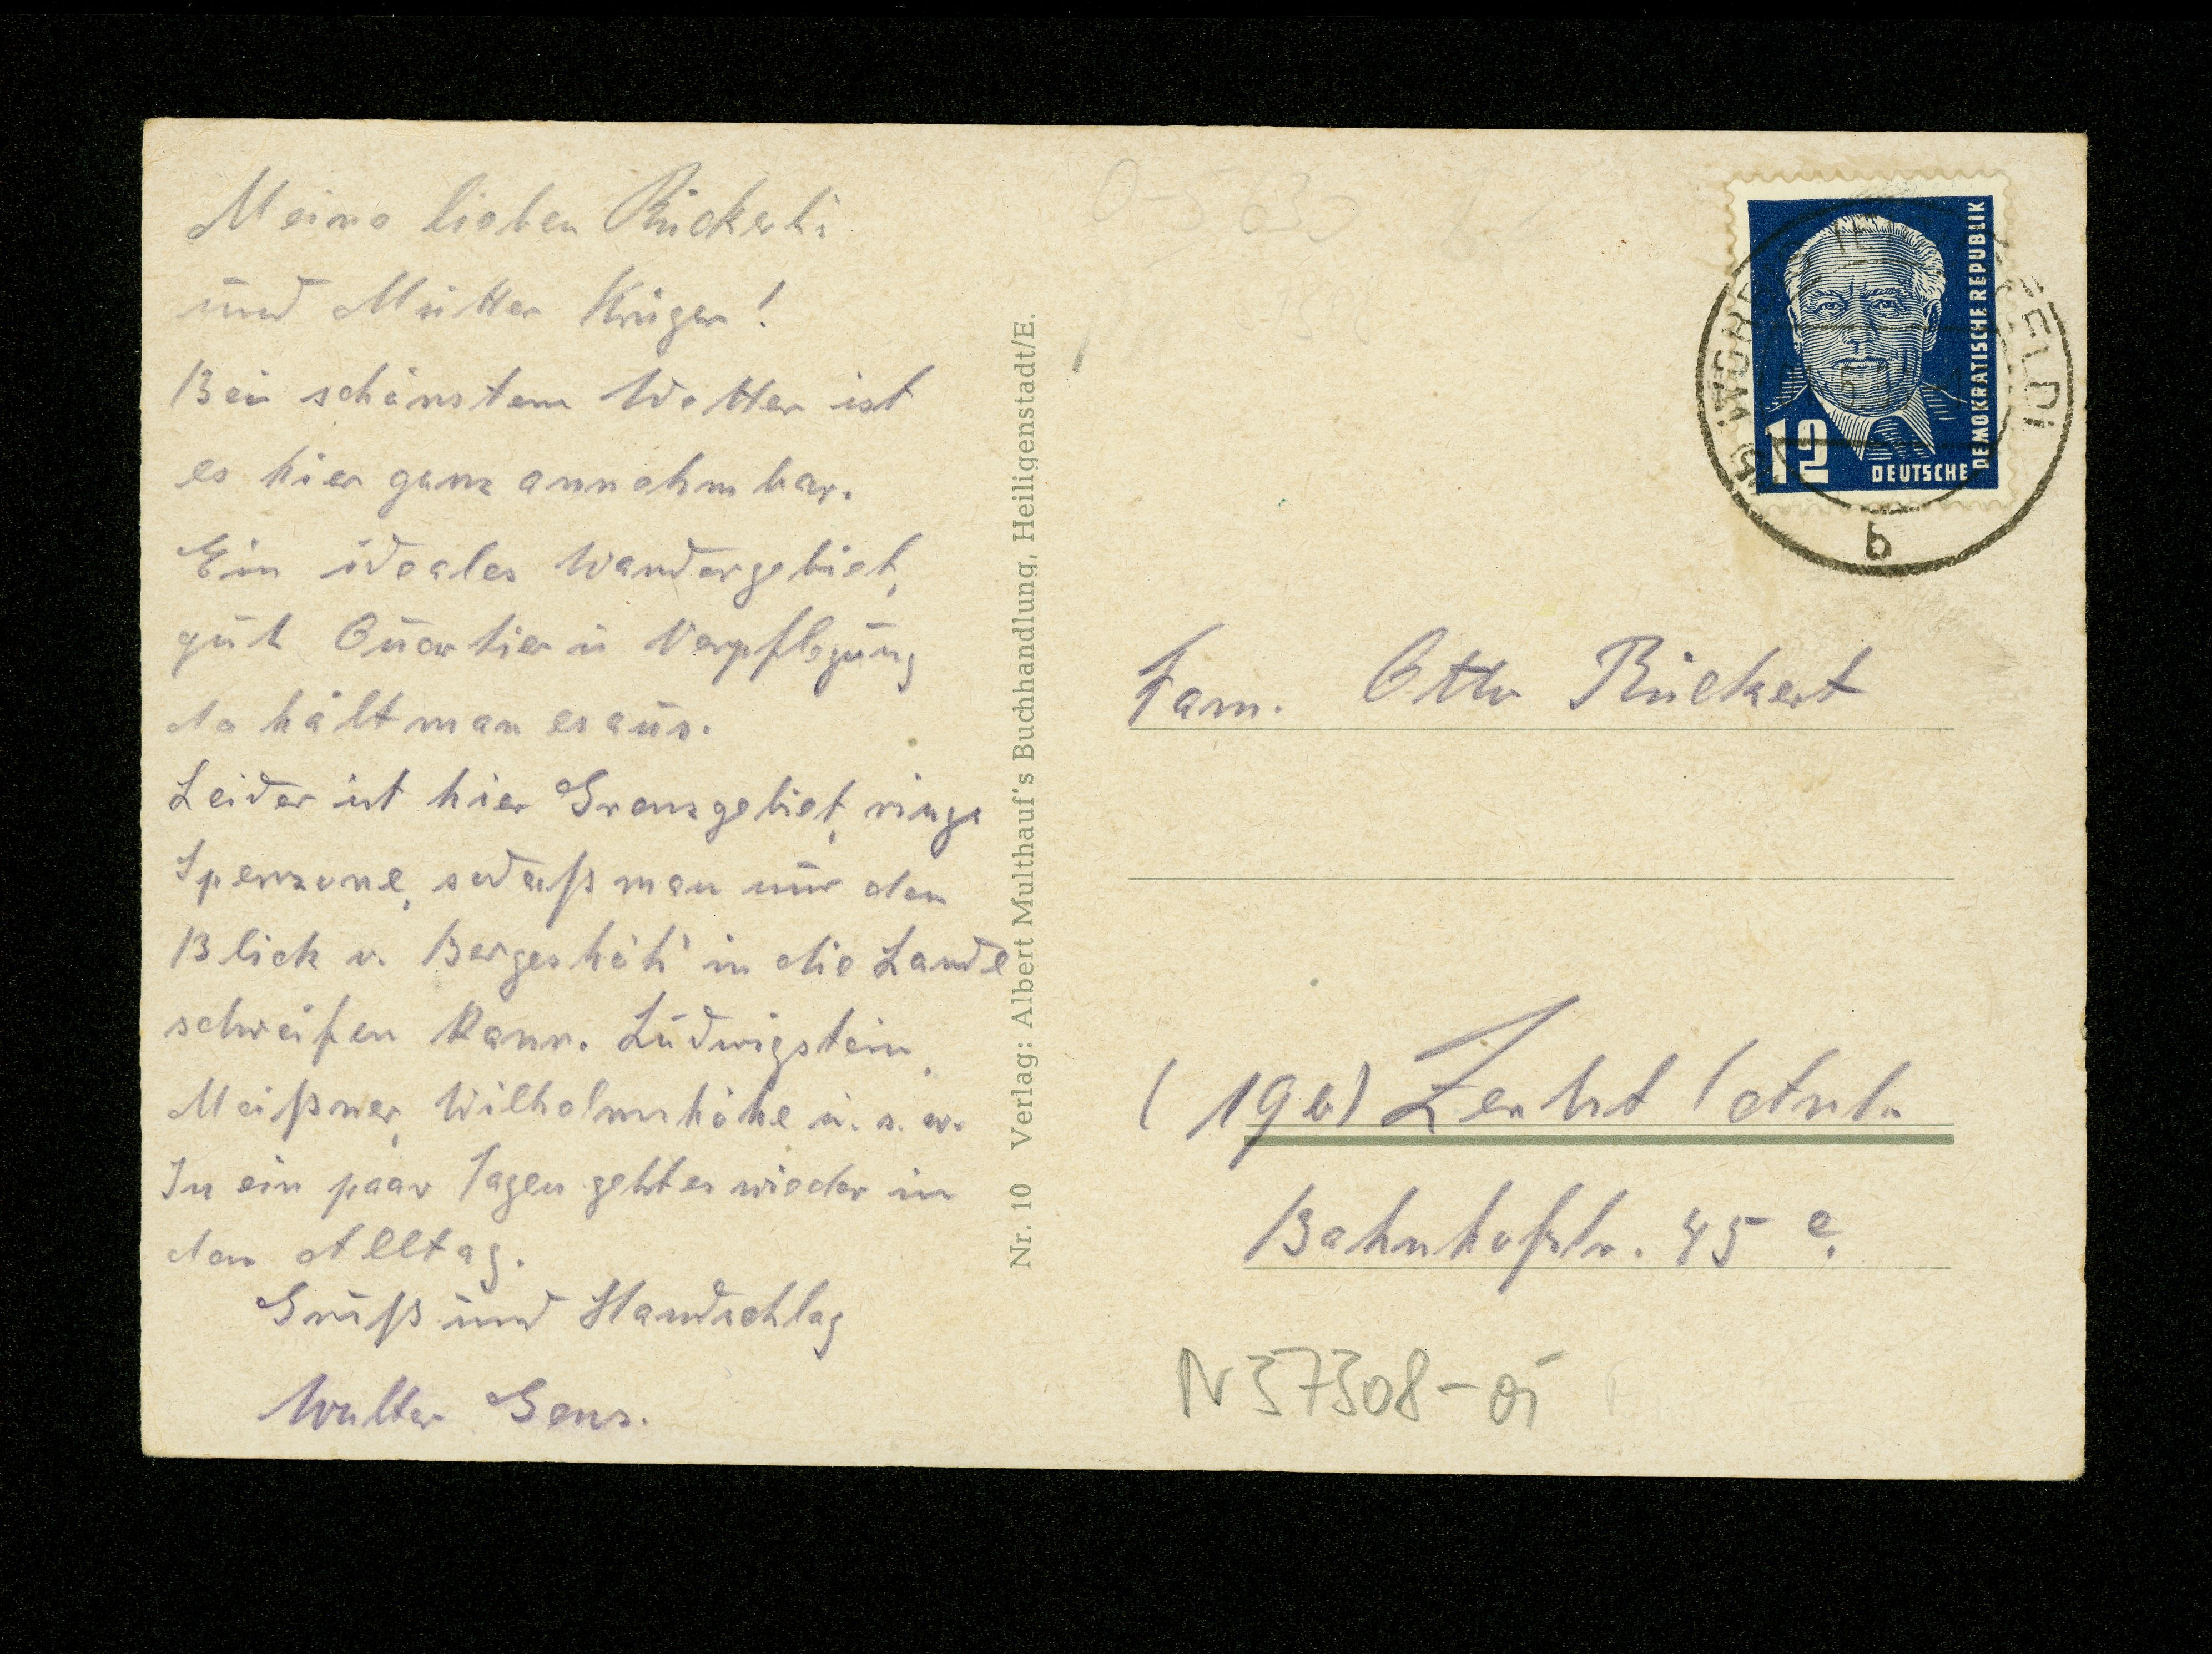 Meine lieben Rückert's
und Mutter Krüger!
Bei schönstem Wetter ist
es hier ganz annehmbar.
Ein ideales Wandergebiet,
gut Quartier u Verpflegung
da hält man es aus.
Leider ist hier Grenzgebiet, rings
Sperrzone, sodaß man nur den
Blick v. Bergeshöh' in die Lande
schweifen kann. Ludwigstein,
Meißner, Wilhelmshöhe u. s. w.
In ein paar Tagen geht es wieder in
den Alltag.
Gruß und Handschlag
Walter Gens.
Nr. 10 Verlag: Albert Multhauf's Buchhandlung, Heiligenstadt/E.
DEUTSCHE DEMOKRATISCHE REPUBLIK
12
b
Fam. Otto Rückert
(19b) Zerbst /Anh.
Bahnhofstr. 45 e.
N 37308-01